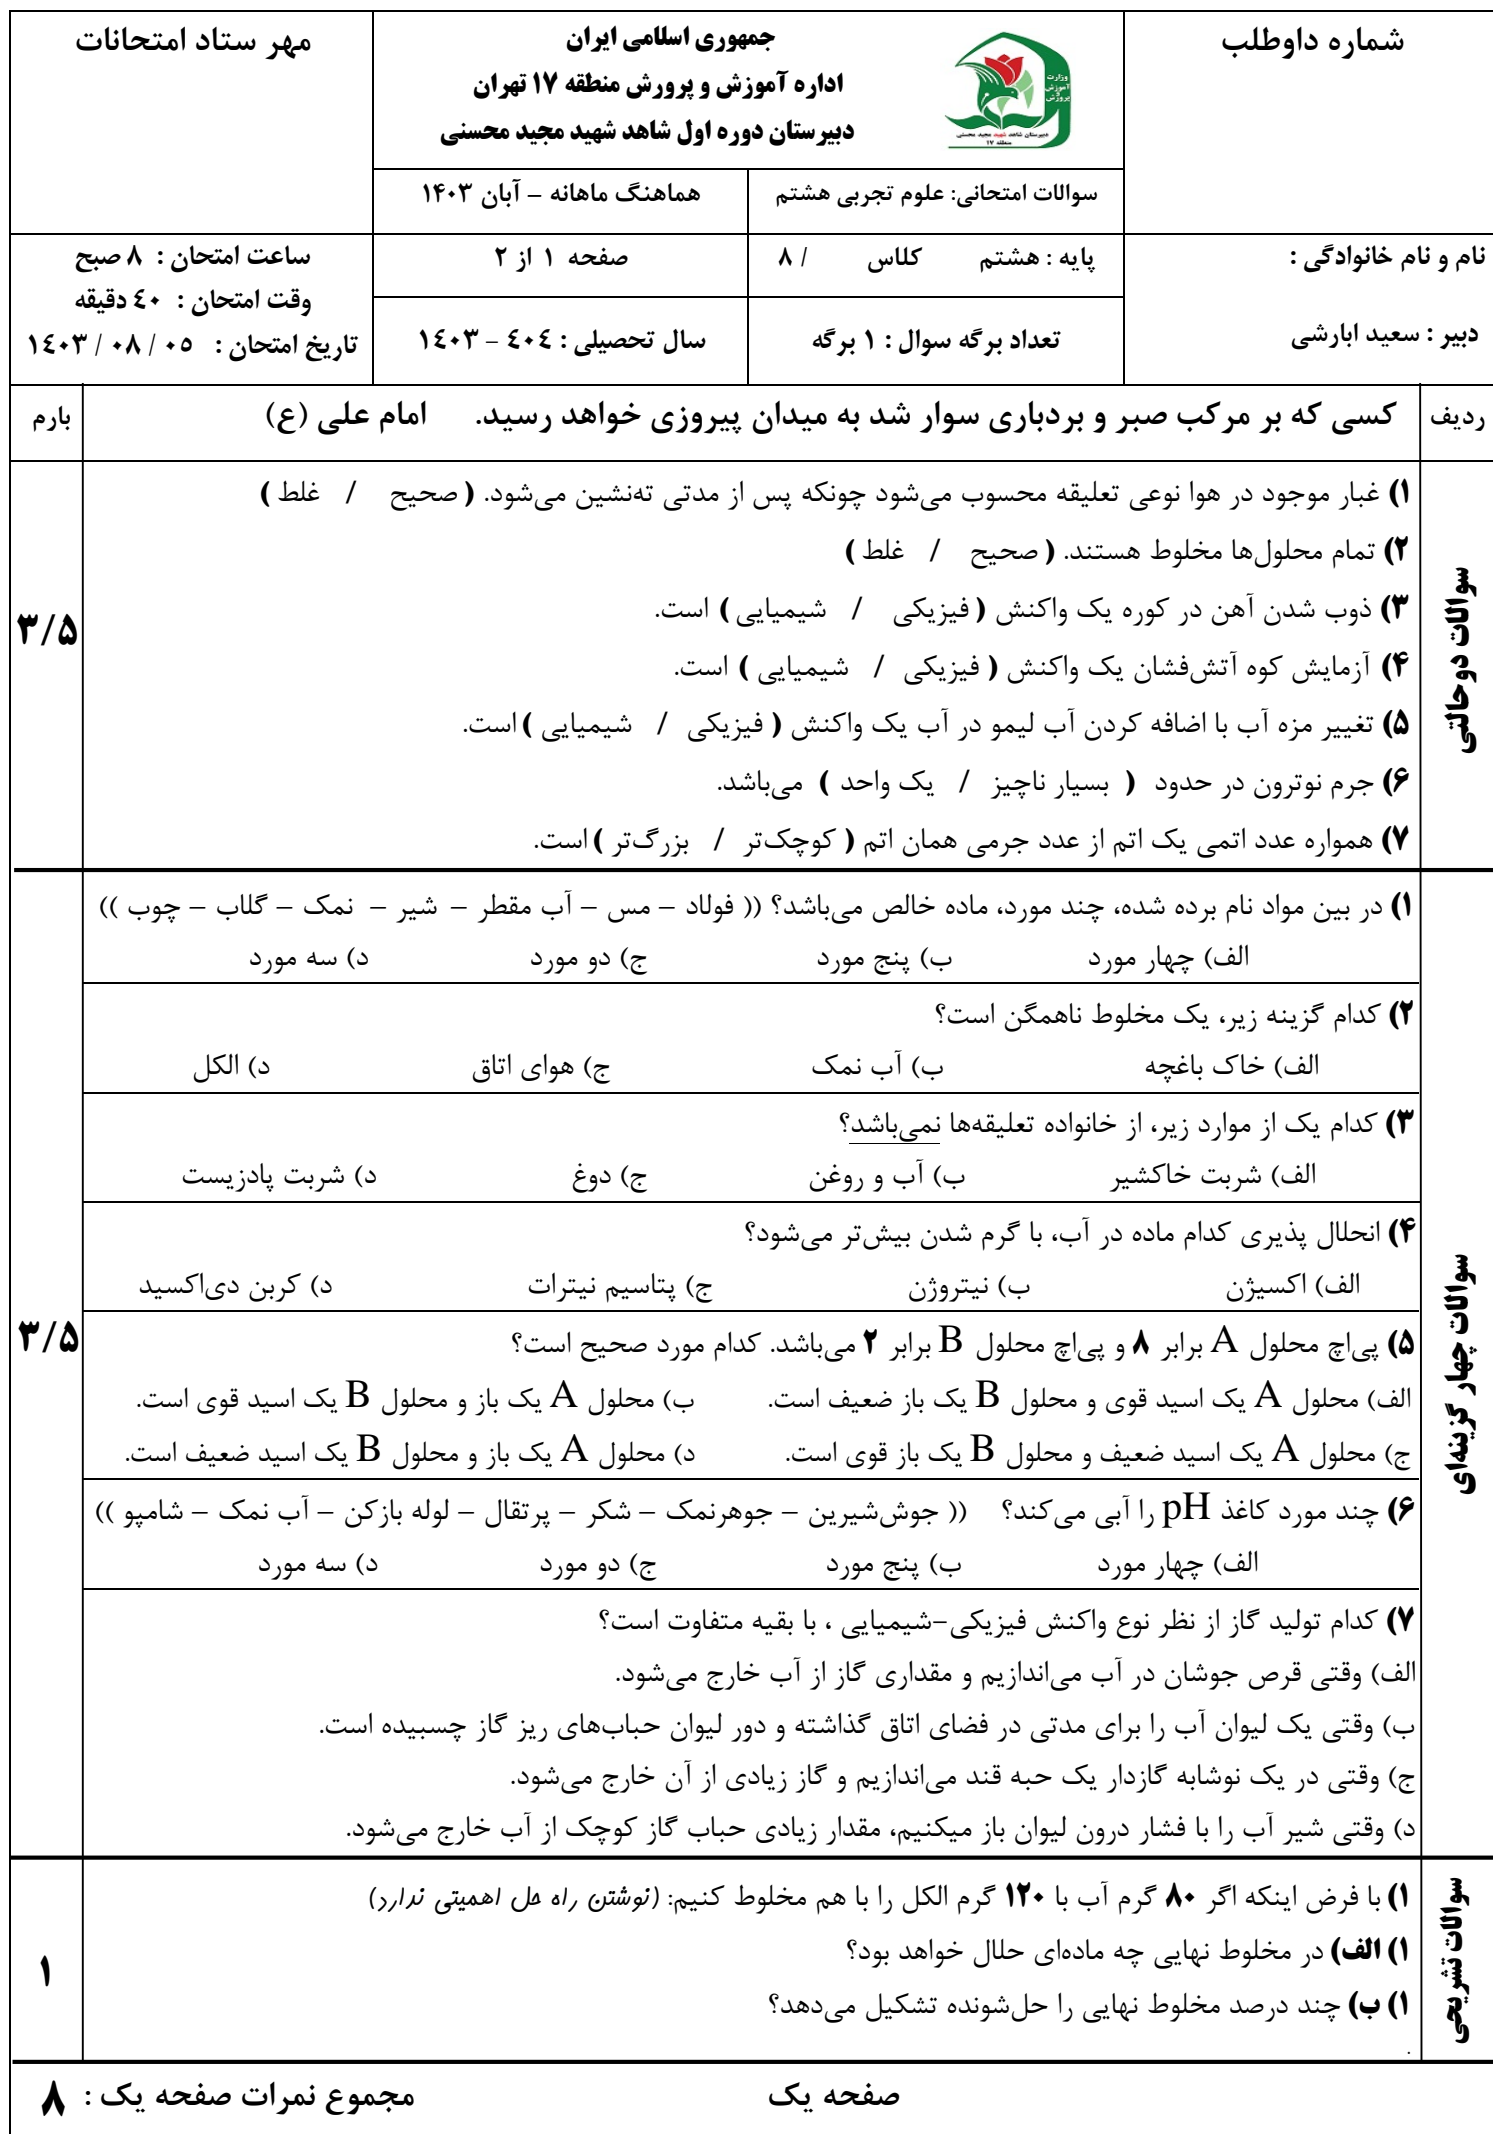 شماره داوطلب
جمهوری اسلامی ایران
اداره آموزش و پرورش منطقه ۱۷ تهران
دبیرستان دوره اول شاهد شهید مجید محسنی
وزارت
آموزش
پرورش
دبیرستان شاهد شهید مجید محسنی
منطقه ۱۷
مهر ستاد امتحانات
سوالات امتحانی: علوم تجربی هشتم
هماهنگ ماهانه – آبان ۱۴۰۳
نام و نام خانوادگی :
دبیر : سعید ابارشی
پایه : هشتم کلاس / ۸
صفحه ۱ از ۲
تعداد برگه سوال : ۱ برگه
سال تحصیلی : ٤٠٤ – ١٤٠٣
ساعت امتحان : ۸ صبح
وقت امتحان : ٤٠ دقیقه
تاریخ امتحان : ٠٥ / ٠٨ / ١٤٠٣
ردیف
کسی که بر مرکب صبر و بردباری سوار شد به میدان پیروزی خواهد رسید. امام علی (ع)
بارم
سوالات دوحالتی
۱) غبار موجود در هوا نوعی تعلیقه محسوب می‌شود چونکه پس از مدتی ته‌نشین می‌شود. ( صحیح / غلط )
۲) تمام محلول‌ها مخلوط هستند. ( صحیح / غلط )
۳) ذوب شدن آهن در کوره یک واکنش ( فیزیکی / شیمیایی ) است.
۴) آزمایش کوه آتش‌فشان یک واکنش ( فیزیکی / شیمیایی ) است.
۵) تغییر مزه آب با اضافه کردن آب لیمو در آب یک واکنش ( فیزیکی / شیمیایی ) است.
۶) جرم نوترون در حدود ( بسیار ناچیز / یک واحد ) می‌باشد.
۷) همواره عدد اتمی یک اتم از عدد جرمی همان اتم ( کوچک‌تر / بزرگ‌تر ) است.
۳/۵
سوالات چهار گزینه‌ای
۱) در بین مواد نام برده شده، چند مورد، ماده خالص می‌باشد؟ (( فولاد – مس – آب مقطر – شیر – نمک – گلاب – چوب ))
الف) چهار مورد ب) پنج مورد ج) دو مورد د) سه مورد
۲) کدام گزینه زیر، یک مخلوط ناهمگن است؟
الف) خاک باغچه ب) آب نمک ج) هوای اتاق د) الکل
۳) کدام یک از موارد زیر، از خانواده تعلیقه‌ها نمی‌باشد؟
الف) شربت خاکشیر ب) آب و روغن ج) دوغ د) شربت پادزیست
۴) انحلال پذیری کدام ماده در آب، با گرم شدن بیش‌تر می‌شود؟
الف) اکسیژن ب) نیتروژن ج) پتاسیم نیترات د) کربن دی‌اکسید
۵) پی‌اچ محلول A برابر ۸ و پی‌اچ محلول B برابر ۲ می‌باشد. کدام مورد صحیح است؟
الف) محلول A یک اسید قوی و محلول B یک باز ضعیف است. ب) محلول A یک باز و محلول B یک اسید قوی است.
ج) محلول A یک اسید ضعیف و محلول B یک باز قوی است. د) محلول A یک باز و محلول B یک اسید ضعیف است.
۶) چند مورد کاغذ pH را آبی می‌کند؟ (( جوش‌شیرین – جوهرنمک – شکر – پرتقال – لوله بازکن – آب نمک – شامپو ))
الف) چهار مورد ب) پنج مورد ج) دو مورد د) سه مورد
۷) کدام تولید گاز از نظر نوع واکنش فیزیکی-شیمیایی ، با بقیه متفاوت است؟
الف) وقتی قرص جوشان در آب می‌اندازیم و مقداری گاز از آب خارج می‌شود.
ب) وقتی یک لیوان آب را برای مدتی در فضای اتاق گذاشته و دور لیوان حباب‌های ریز گاز چسبیده است.
ج) وقتی در یک نوشابه گازدار یک حبه قند می‌اندازیم و گاز زیادی از آن خارج می‌شود.
د) وقتی شیر آب را با فشار درون لیوان باز میکنیم، مقدار زیادی حباب گاز کوچک از آب خارج می‌شود.
۳/۵
سوالات تشریحی
۱) با فرض اینکه اگر ۸۰ گرم آب با ۱۲۰ گرم الکل را با هم مخلوط کنیم: (نوشتن راه حل اهمیتی ندارد)
۱) الف) در مخلوط نهایی چه ماده‌ای حلال خواهد بود؟
۱) ب) چند درصد مخلوط نهایی را حل‌شونده تشکیل می‌دهد؟
.
۱
صفحه یک
مجموع نمرات صفحه یک : ۸